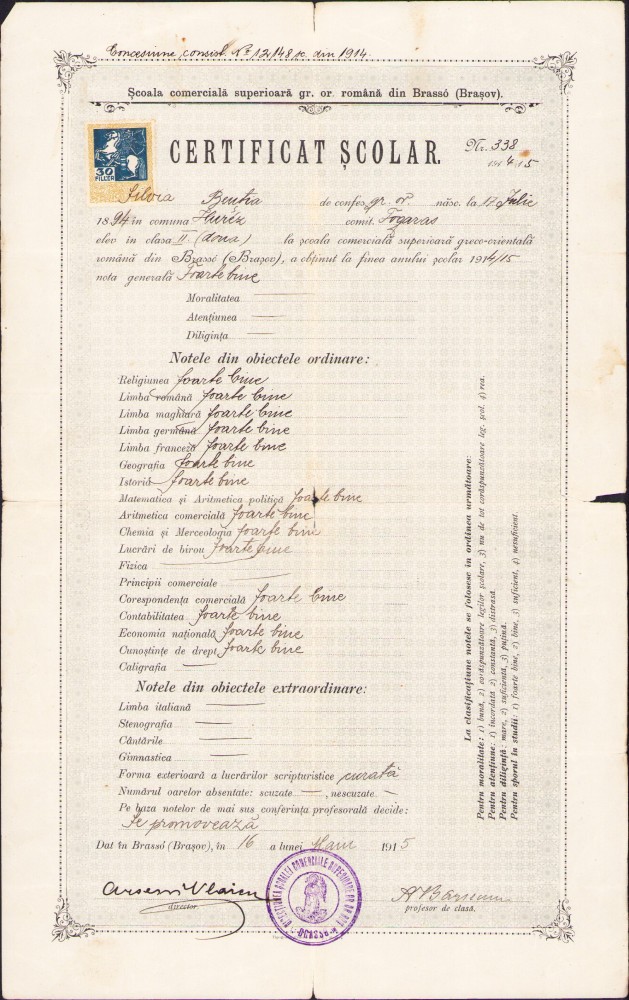 Concesiune consist. Nº 12148 sc. din 1914.
Școala comercială superioară gr. or. română din Brassó (Brașov).
30
FILLER
CERTIFICAT ȘCOLAR.
Nr. 338
1914/15
Silvia de confes. gr. or. născ. la 17 Iulie
1894 în comuna comit. Fogaras
elev în clasa II. (doua) la școala comercială superioară greco-orientală
română din Brassó (Brașov), a obținut la finea anului școlar 1914/15
nota generală Foarte bine
Moralitatea
Atențiunea
Diligința
Notele din obiectele ordinare:
Religiunea foarte bine
Limba română foarte bine
Limba maghiară foarte bine
Limba germană foarte bine
Limba franceză foarte bine
Geografia foarte bine
Istoria foarte bine
Matematica și Aritmetica politică foarte bine
Aritmetica comercială foarte bine
Chemia și Merceologia foarte bine
Lucrări de birou foarte bine
Fizica
Principii comerciale
Corespondența comercială foarte bine
Contabilitatea foarte bine
Economia națională foarte bine
Cunoștințe de drept foarte bine
Caligrafia
Notele din obiectele extraordinare:
Limba italiană
Stenografia
Cântările
Gimnastica
Forma exterioară a lucrărilor scripturistice curată
Numărul oarelor absentate: scuzate —, nescuzate —
Pe baza notelor de mai sus conferința profesorală decide:
Se promovează
Dat în Brassó (Brașov), în 16 a lunei Maiu 1915
Arseni Vlaicu
director.
profesor de clasă.
La clasificațiune notele se folosesc în ordinea următoare:
Pentru moralitate: 1) bună, 2) corăspunzătoare legilor școlare, 3) nu de tot corăspunzătoare leg. școl. 4) rea.
Pentru atențiune: 1) încordată 2) constantă, 3) distrasă.
Pentru diligință: mare, 2) suficientă, 3) puțină.
Pentru sporul în studii: 1) foarte bine, 2) bine, 3) suficient, 4) nesuficient.